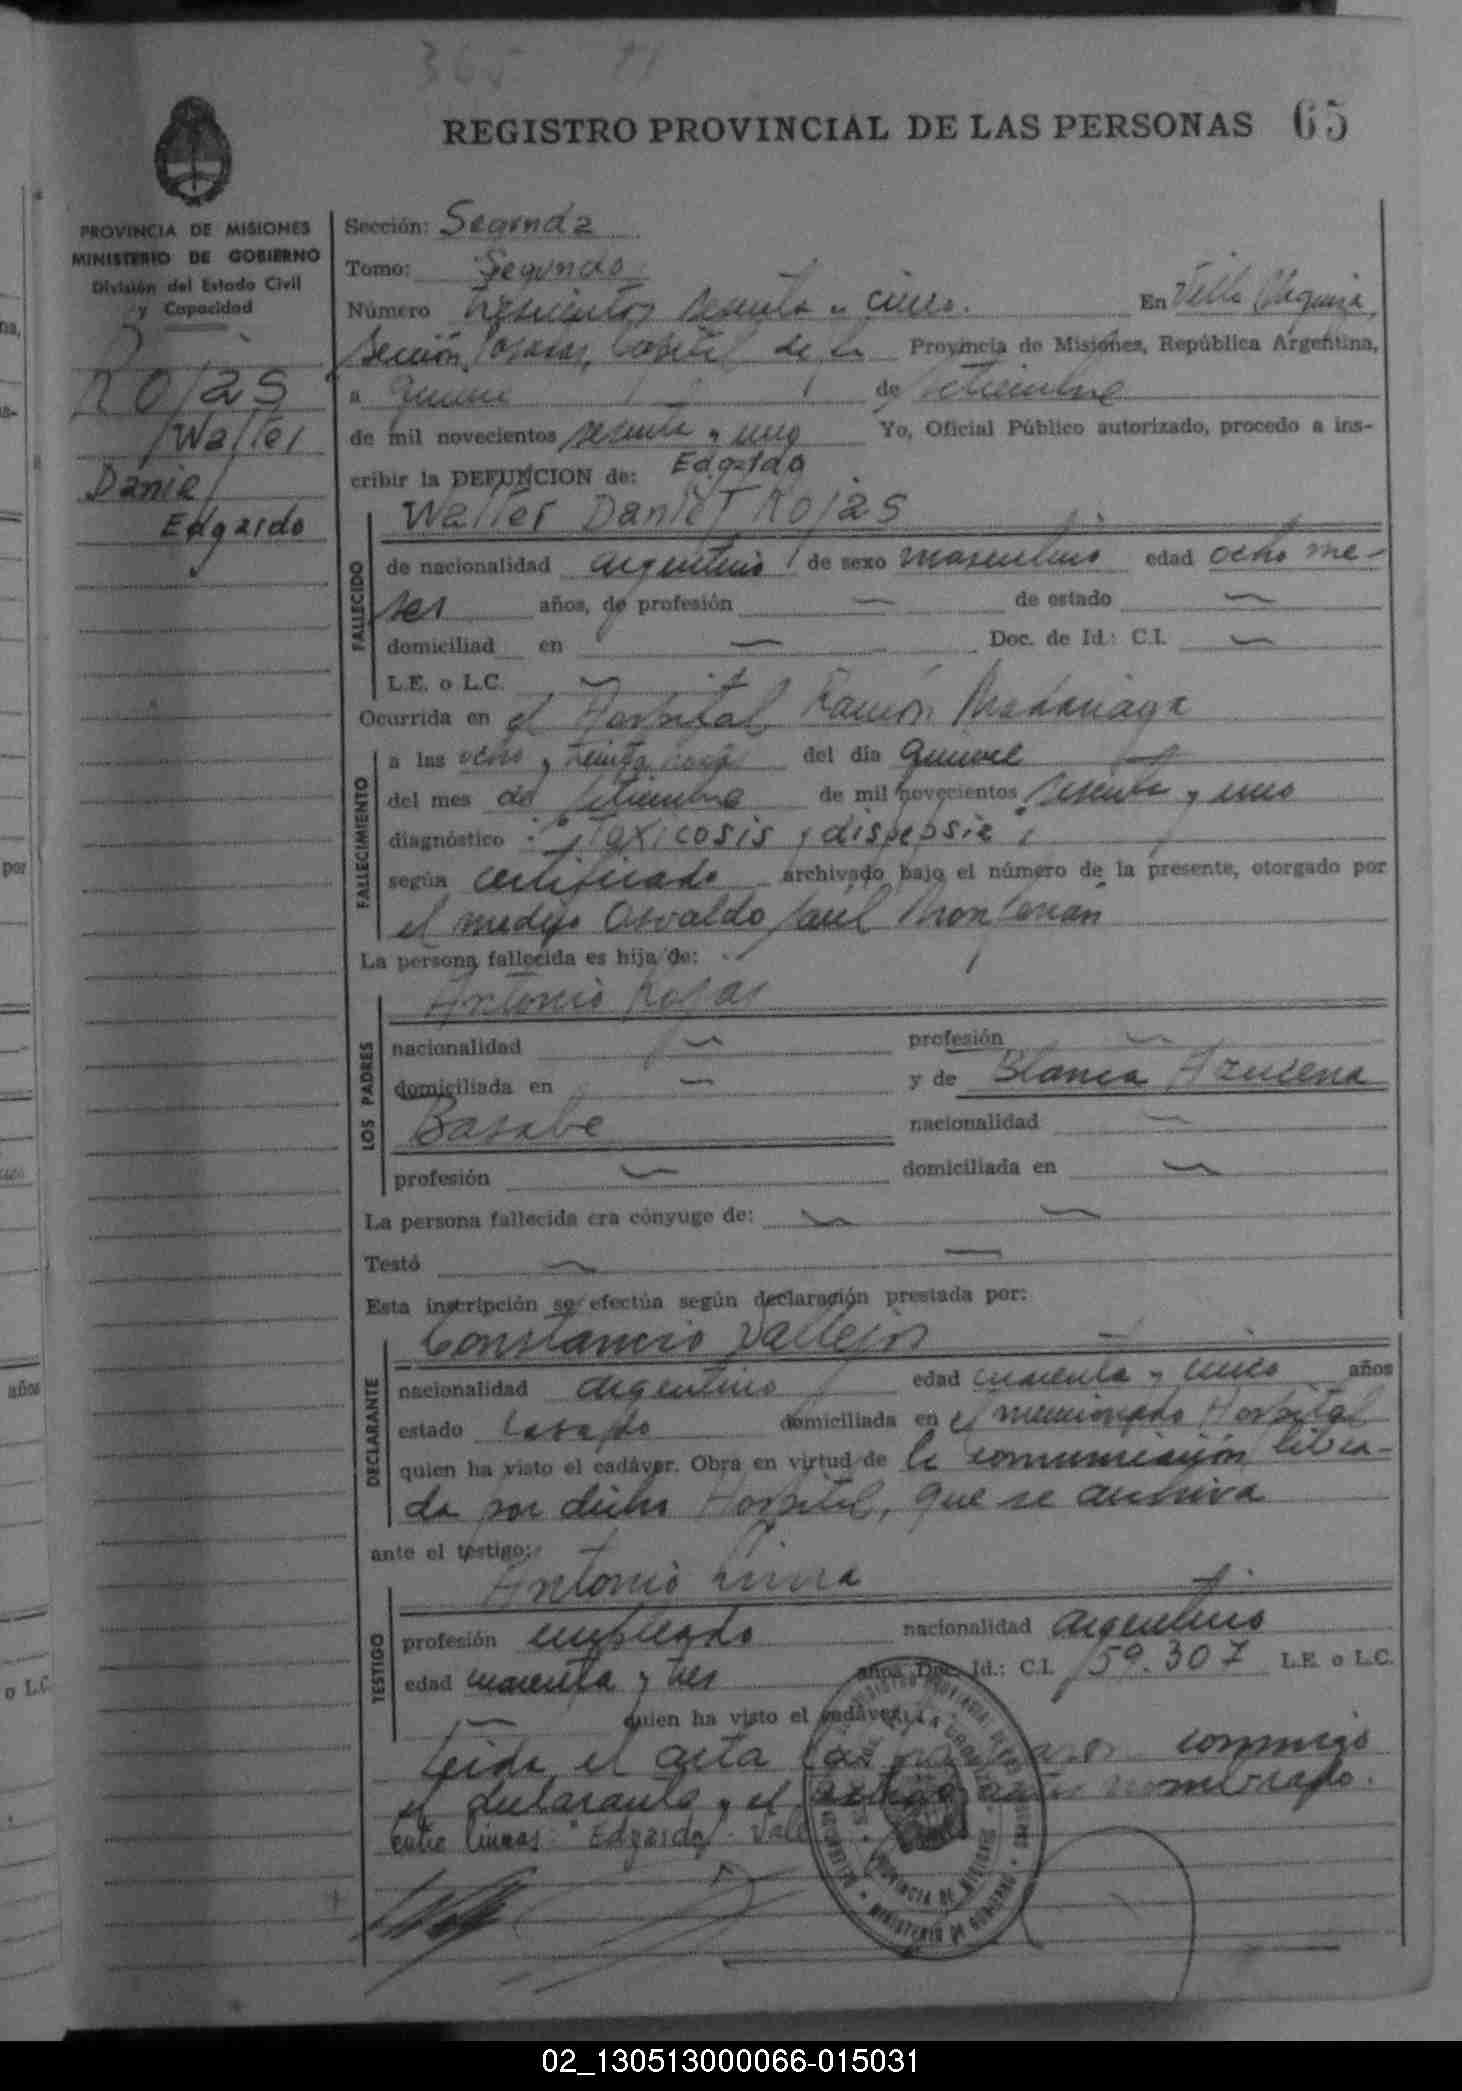 365
REGISTRO PROVINCIAL DE LAS PERSONAS 65
PROVINCIA DE MISIONES
MINISTERIO DE GOBIERNO
División del Estado Civil
y Capacidad
Rojas
Walter
Daniel
Edgardo
Sección: Segunda
Tomo: Segundo
Número trescientos sesenta y cinco. En Villa Urquiza,
Sección Posadas, Capital de la Provincia de Misiones, República Argentina,
a quince de setiembre
de mil novecientos sesenta y uno Yo, Oficial Público autorizado, procedo a ins-
cribir la DEFUNCION de: Edgardo
Walter Daniel Rojas
FALLECIDO
de nacionalidad argentino de sexo masculino edad ocho me-
ses años, de profesión — de estado —
domiciliad en — Doc. de Id.: C.I. —
L.E. o L.C. —
Ocurrida en el Hospital Ramón Madariaga
FALLECIMIENTO
a las ocho y treinta horas del día quince
del mes de setiembre de mil novecientos sesenta y uno
diagnóstico: "Toxicosis y dispepsia",
según certificado archivado bajo el número de la presente, otorgado por
el medico Osvaldo Saúl
La persona fallecida es hija de:
LOS PADRES
Antonio Rojas
nacionalidad — profesión —
domiciliada en — y de Blanca Azucena
Basabe nacionalidad —
profesión — domiciliada en —
La persona fallecida era cónyuge de: — —
Testó — —
Esta inscripción se efectúa según declaración prestada por:
DECLARANTE
Constancio Vallejos
nacionalidad argentino edad cuarenta y cinco años
estado casado domiciliada en el mencionado Hospital
quien ha visto el cadáver. Obra en virtud de la comunicación libra-
da por dicho Hospital, que se archiva
ante el testigo:
TESTIGO
Antonio
profesión empleado nacionalidad argentino
edad cuarenta y tres años Doc. Id.: C.I. 159.307 L.E. o L.C.
— quien ha visto el cadáver.
Leida el acta la conmigo
el declarante y el testigo antes nombrado.
entre lineas: "Edgardo". Vale
PROVINCIA DE MISIONES
MINISTERIO DE GOBIERNO
02_130513000066-015031